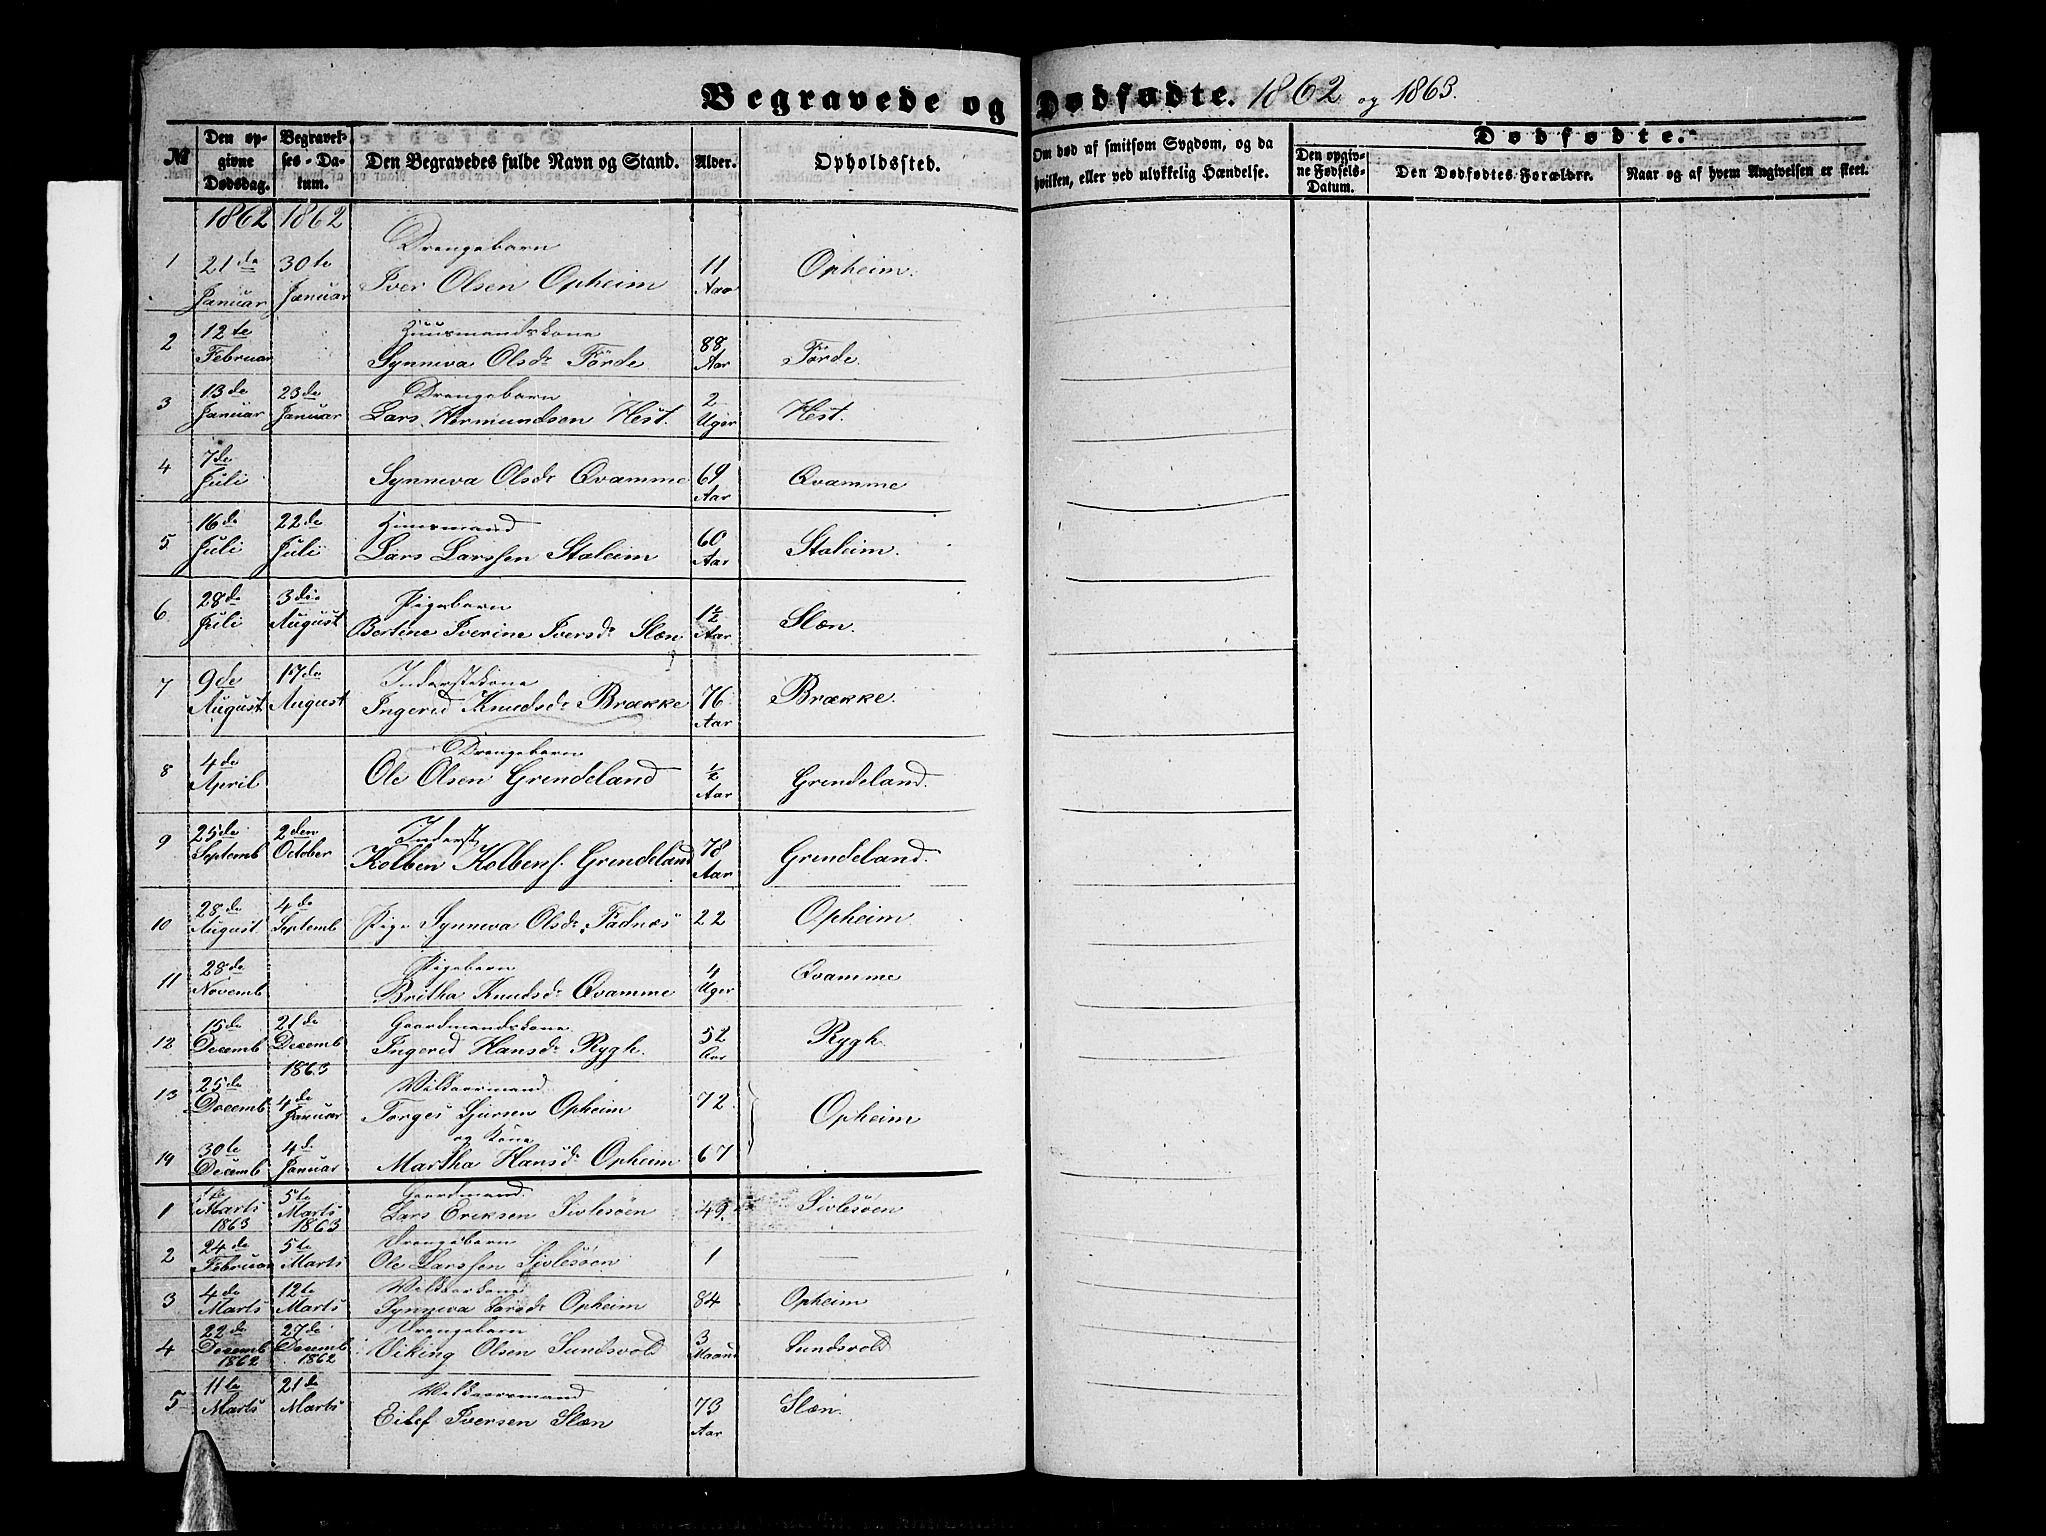 Begravede og Dødfødte. 1862 og 1863.
№ Den opgivne Dødsdag. Begravelses-Datum. Den Begravedes fulde Navn og Stand. Alder. Opholdssted. Om død af smitsom Sygdom, og da hvilken, eller ved ulykkelig Hændelse. Dødfødte. Den opgivne Fødsels-Datum. Den Dødfødtes Forældre. Naar og af hvem Angivelsen er skeet.
1862 1862
Drengebarn
1 21de Januar 30te Januar Iver Olsen Opheim 11 Aar Opheim.
Huusmandskone
2 12te Februar Synneva Olsdr Förde 88 Aar Förde.
Drengebarn
3 13de Januar 23de Januar Lars Hermundsen Hest. 2 Uger Hest.
4 7de Juli Synneva Olsdr Qvamme 69 Aar Qvamme
Huusmand
5. 16de Juli 22de Juli Lars Larssen Staleim 60 Aar Staleim.
Pigebarn
6. 28de Juli 3die August Bertine Iverine Iversdr Slæn 1½ Aar Slæn.
Inderstkone
7 9de August 17de August Ingerid Knudsdr Brække 76 Aar Brække.
Drengebarn
8 4de April Ole Olsen Grendeland ½ Aar Grendeland.
Inderst
9 25de Septemb 2den October Kolben Kolbens. Grendeland 78 Aar Grendeland.
10 28de August. 4de Septemb Pige Synneva Olsdr Fadnæs 22 Opheim
Pigebarn
11 28de Novemb Britha Knudsdr Qvamme 4 Uger Qvamme
Gaardmandskone
12 15de Decemb 21de Decemb Ingerid Hansdr Rygh. 52 Aar Rygh.
1863
Vilkaarmand
13 25de Decemb 4de Januar Torges Sjursen Opheim 72. Opheim
og Kone
14 30te Decemb 4de Januar Martha Hansdr Opheim 67
Gaardmand.
1 1te Marts 1863 5te Marts 1863 Lars Eriksen Sivlesöen 49. Sivlesöen
Drengebarn
2 24de Februar 5te Marts Ole Larssen Sivlesöen 1 —
Vilkaarkone
3 4de Marts 12te Marts Synneva Larsdr Opheim 84 Opheim
Drengebarn
4 22de Decemb 1862 27de Decemb 1862 Viking Olsen Sundsvold 3 Maand Sundsvold
Vilkaarsmand
5 11te Marts 21de Marts Eilef Iversen Slæn 73 Aar Slæn.